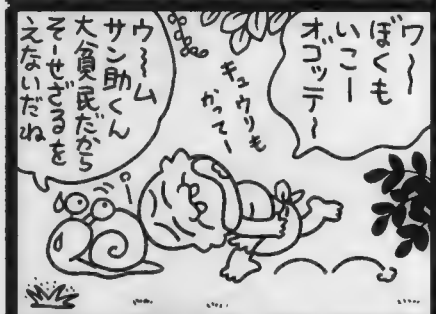 ワ〜〜
ぼくも
いこー
オゴッテ〜
キュウリも
かってー
ウ〜〜ム
サン助くん
大貧民だから
そーせざるを
えないだね